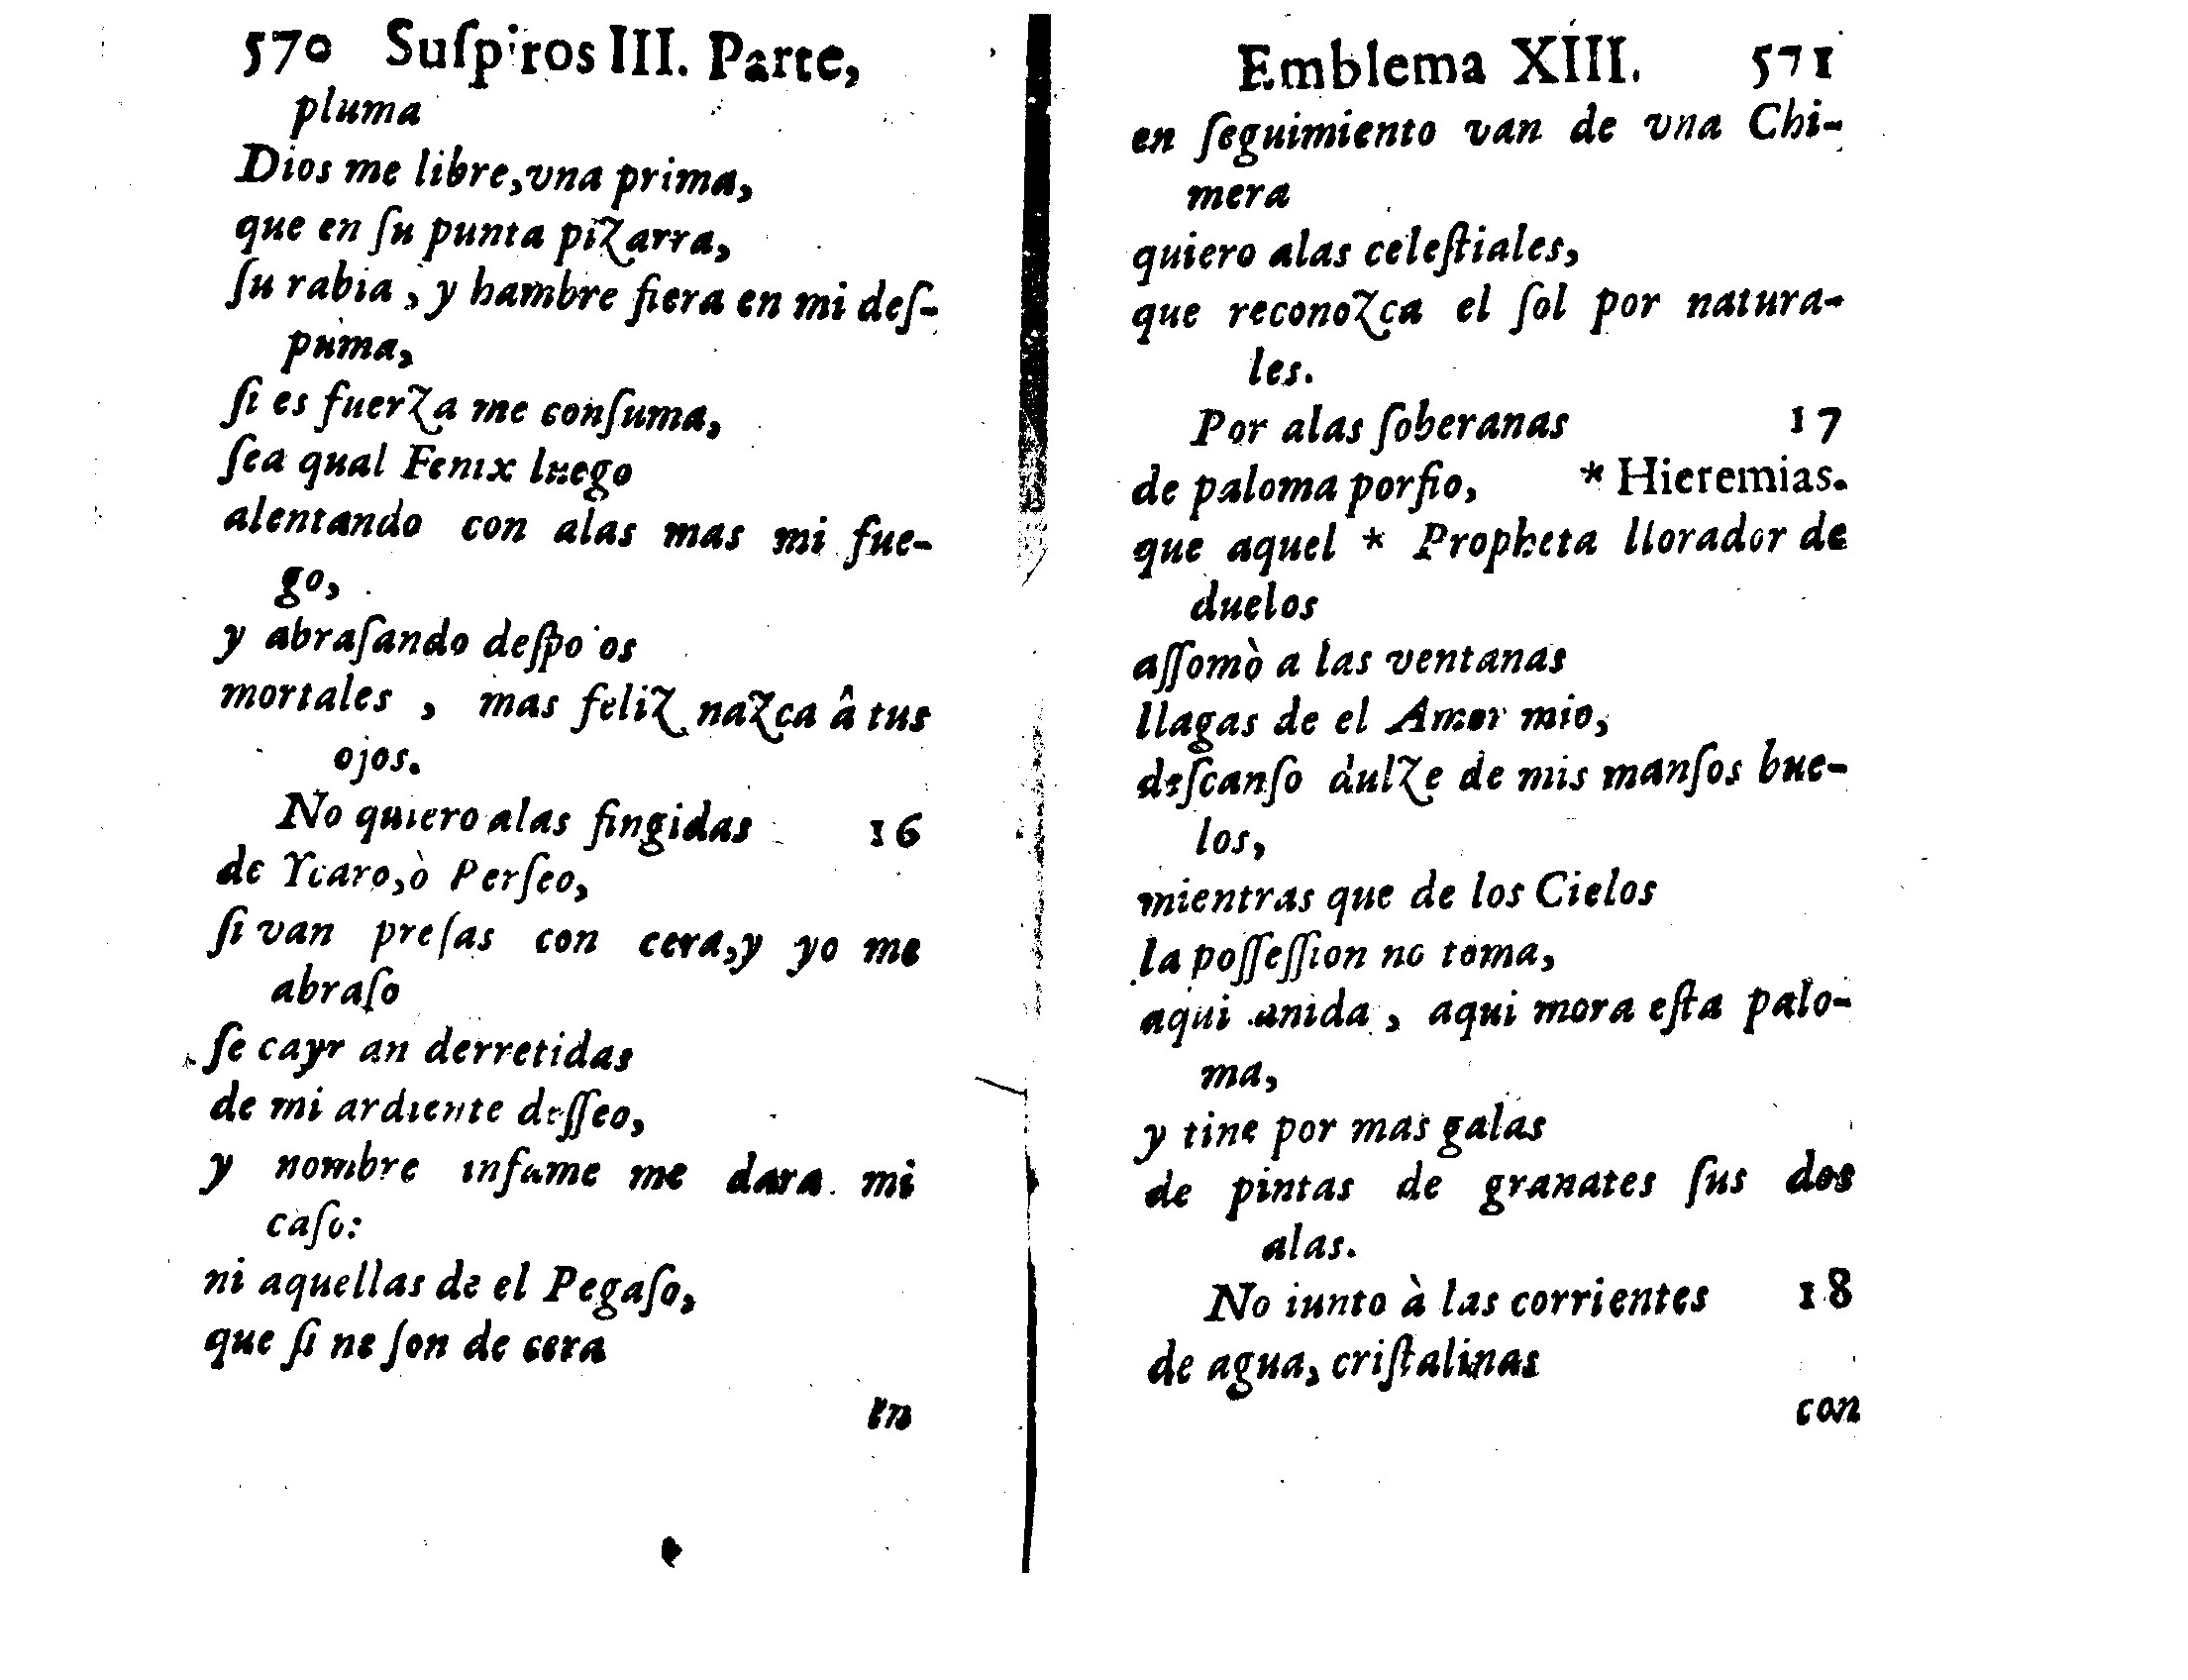 570 Suſpiros III. Parte,
pluma
Dios me libre,vna prima,
que en ſu punta pizarra,
ſu rabia, y hambre fiera en mi deſ-
puma,
ſi es fuerza me conſuma,
ſea qual Fenix luego
alentando con alas mas mi fue-
go,
y abraſando deſpo os
mortales , mas feliz nazca â tus
ojos.
No quiero alas fingidas 16
de Ycaro,ò Perſeo,
ſi van preſas con cera,y yo me
abraſo
ſe cayr an derretidas
de mi ardiente deſſeo,
y nombre infame me dara mi
caſo:
ni aquellas de el Pegaſo,
que ſi ne ſon de cera
en
Emblema XIII. 571
en ſeguimiento van de vna Chi-
mera
quiero alas celeſtiales,
que reconozca el ſol por natura-
les.
Por alas ſoberanas 17
de paloma porfio, * Hieremias.
que aquel * Propheta llorador de
duelos
aſſomò a las ventanas
llagas de el Amor mio,
deſcanſo dulze de mis manſos bue-
los,
mientras que de los Cielos
la poſſeſſion no toma,
aqui anida , aqui mora eſta palo-
ma,
y tine por mas galas
de pintas de granates ſus dos
alas.
No iunto à las corrientes 18
de agua, criſtalinas
con